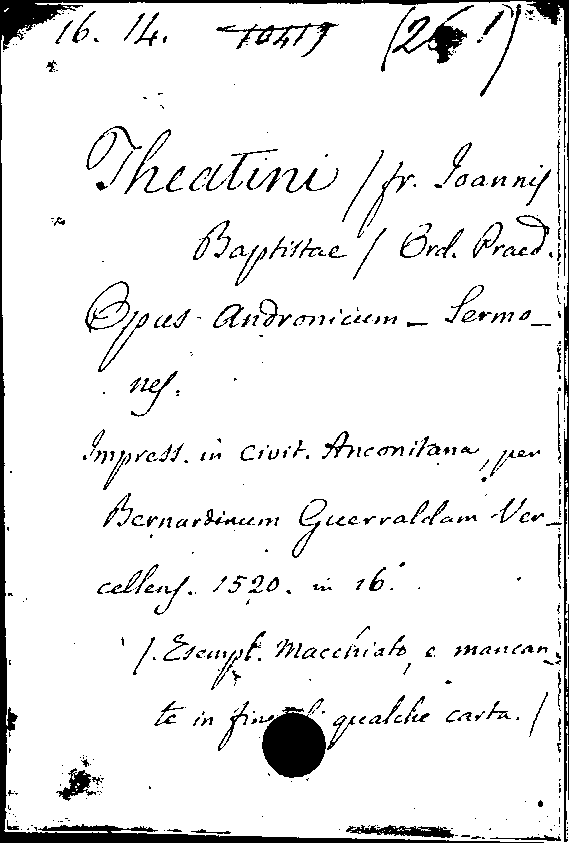 16. 14. 10419
Theatini / fr. Ioannis
Baptistae / Ord. Praed.
Opus Andronicum - Sermo-
nes.
Impress. in civit. Anconitana, per
Bernardinum Guerraldum Ver-
cellens. 1520. in 16.°
/. Esempl. Macchiato, e mancan-
te in fine di qualche carta. /